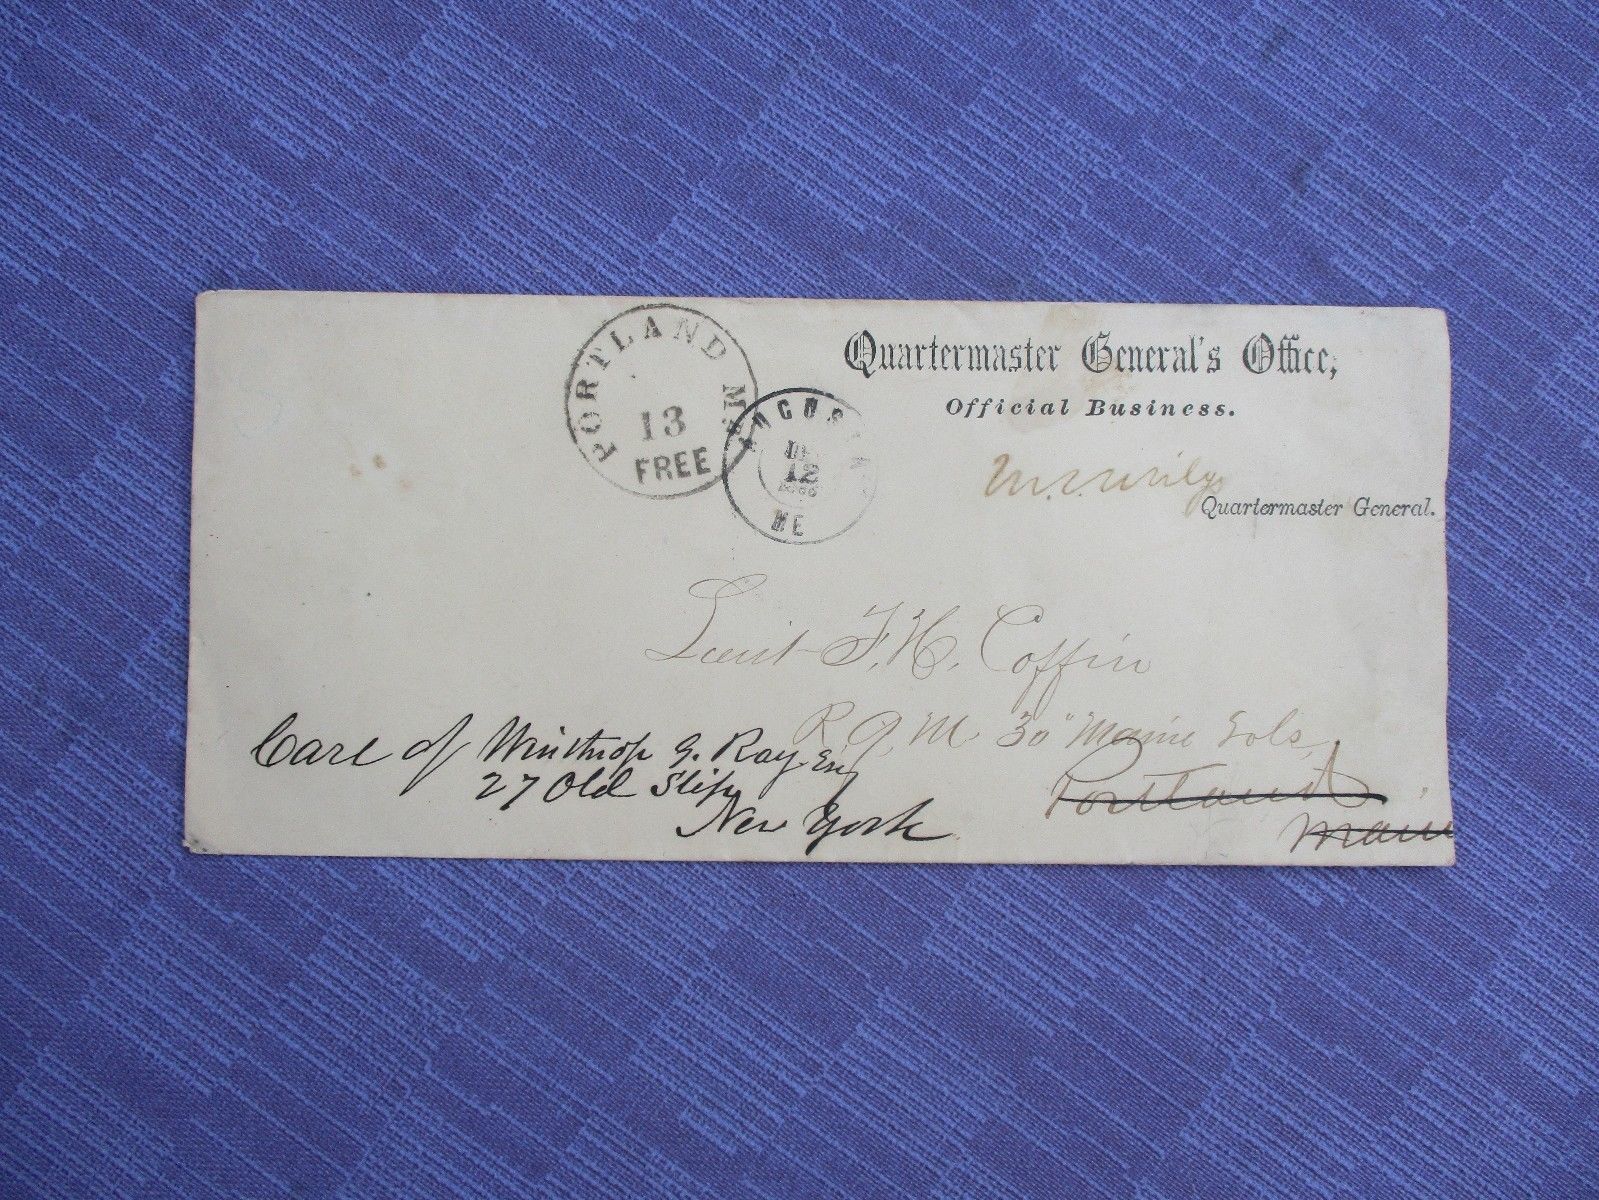 Quartermaster General's Office,
Official Business.
Quartermaster General.
PORTLAND Me
13
FREE
AUGUSTA
12
ME
Lieut F. H. Coffin
R. Q. M. 30" Maine Vols
Portland
Maine
Care of Winthrop G. Ray Esq
27 Old Slip
New York